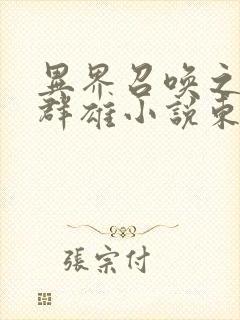 異界召喚之
群雄小説東
張宗付